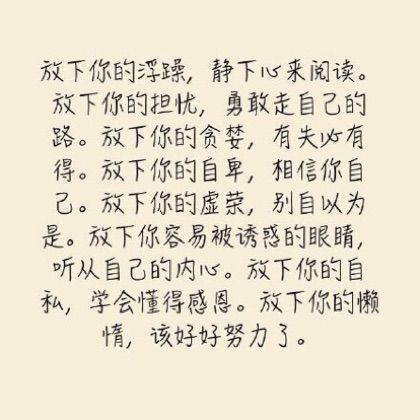 放下你的浮躁，静下心来阅读。
放下你的担忧，勇敢走自己的
路。放下你的贪婪，有失必有
得。放下你的自卑，相信你自
己。放下你的虚荣，别自以为
是。放下你容易被诱惑的眼睛，
听从自己的内心。放下你的自
私，学会懂得感恩。放下你的懒
惰，该好好努力了。